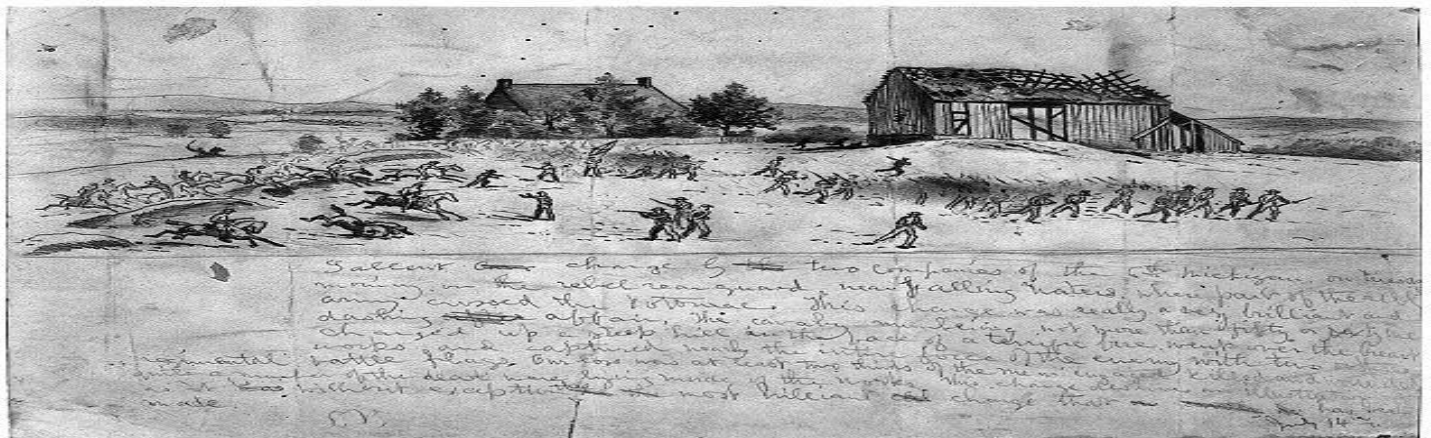 Gallent charge by two companies of the 6th Michigan on tuesday
morning, on the rebel rearguard, near Falling Waters, where part of the rebel
army crossed the Potomac. This charge was really a very brilliant and
dashing affair, the cavalry numbering not more than fifty or sixty men
charged up a steep hill in the face of a terrific fire went over the breast
works, and captured nearly the entire force of the enemy with two
regimental battle flags. Our loss was at least two thirds of the men engaged killed and wounded
a number of the dead were lying inside of the works. This charge
as it was brilliant most brilliant charge that
made.
July 14